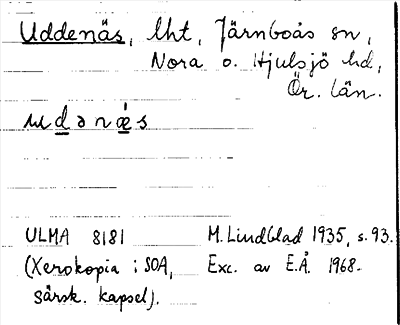 Uddenäs, lht, Järnboås sn,
Nora o. Hjulsjö hd,
Ör. län.
udənæs
ULMA 8181 M. Lindblad 1935, s. 93.
(Xerokopia i SOA, Exc. av E.Å. 1968.
särsk. kapsel).